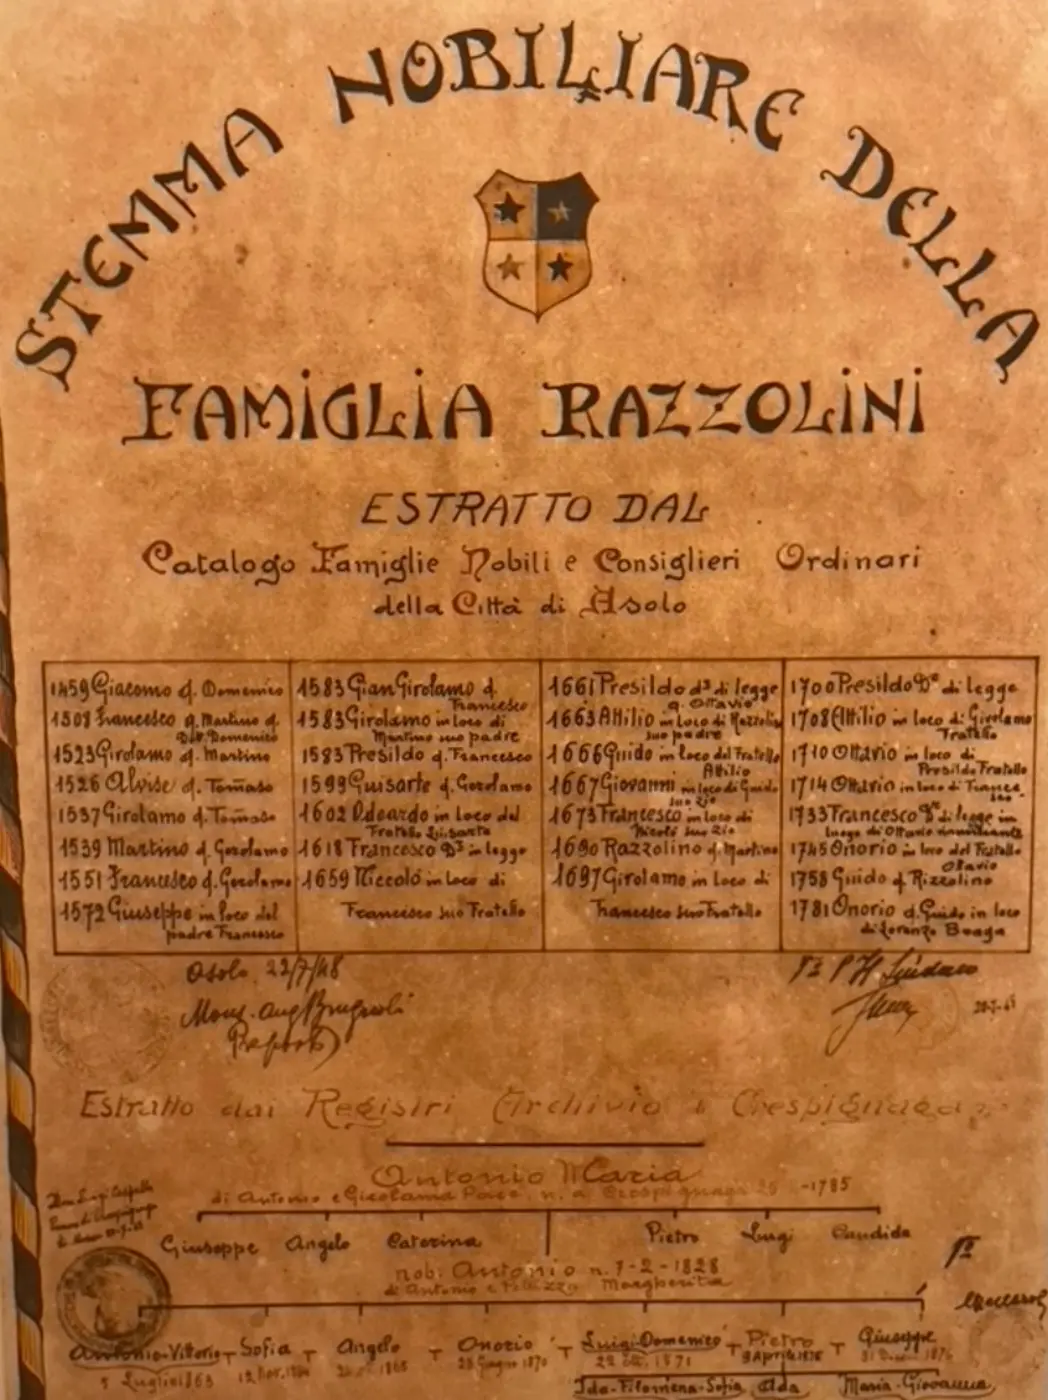 STEMMA NOBILIARE DELLA
FAMIGLIA RAZZOLINI
ESTRATTO DAL
Catalogo Famiglie Nobili e Consiglieri Ordinari
della Città di Asolo
1459 Giacomo q. Domenico
1508 Francesco q. Martino q.
Domenico
1523 Girolamo q. Martino
1526 Alvise q. Tomaso
1537 Girolamo q. Tomaso
1539 Martino q. Gerolamo
1551 Francesco q. Gerolamo
1572 Giuseppe in loco del
padre Francesco
1583 GianGirolamo q.
Francesco
1583 Girolamo in loco di
Martino suo padre
1583 Presildo q. Francesco
1599 Guisarte q. Gerolamo
1602 Odoardo in loco del
Fratello Guisarte
1618 Francesco Dʳ in legge
1659 Niccolò in loco di
Francesco suo Fratello
1661 Presildo dʳ di legge
q. Ottavio
1663 Attilio in loco di Razzolin
suo padre
1666 Guido in loco del Fratello
Attilio
1667 Giovanni in loco di Guido
suo zio
1673 Francesco in loco di
Nicolò suo zio
1690 Razzolino q. Martino
1697 Girolamo in loco di
Francesco suo Fratello
1700 Presildo Dʳ di legge
1708 Attilio in loco di Girolamo
Fratello
1710 Ottavio in loco di
Presildo Fratello
1714 Ottavio in loco di
1733 Francesco Dʳ di legge in
luogo di Ottavio
1745 Onorio in loco del Fratello
Ottavio
1758 Guido q. Rizzolino
1781 Onorio q. Guido in loco
di Lorenzo Beaga
Asolo, 22/7/48
Sindaco
Estratto dai Registri Archivio di Crespignaga
Antonio Maria
di Antonio e Girolama n. a Crespignaga -1785
Giuseppe Angelo Caterina Pietro Luigi Candida
nob. Antonio n. 7-2-1828
di Antonio e Margherita
Antonio-Vittorio Sofia Angelo Onorio Luigi-Domenico Pietro Giuseppe
5 Luglio 1863 12 Nov. 1865 28 Giugno 1870 1871 3 Aprile
Ida-Filomena-Sofia Ada Maria-Giovanna